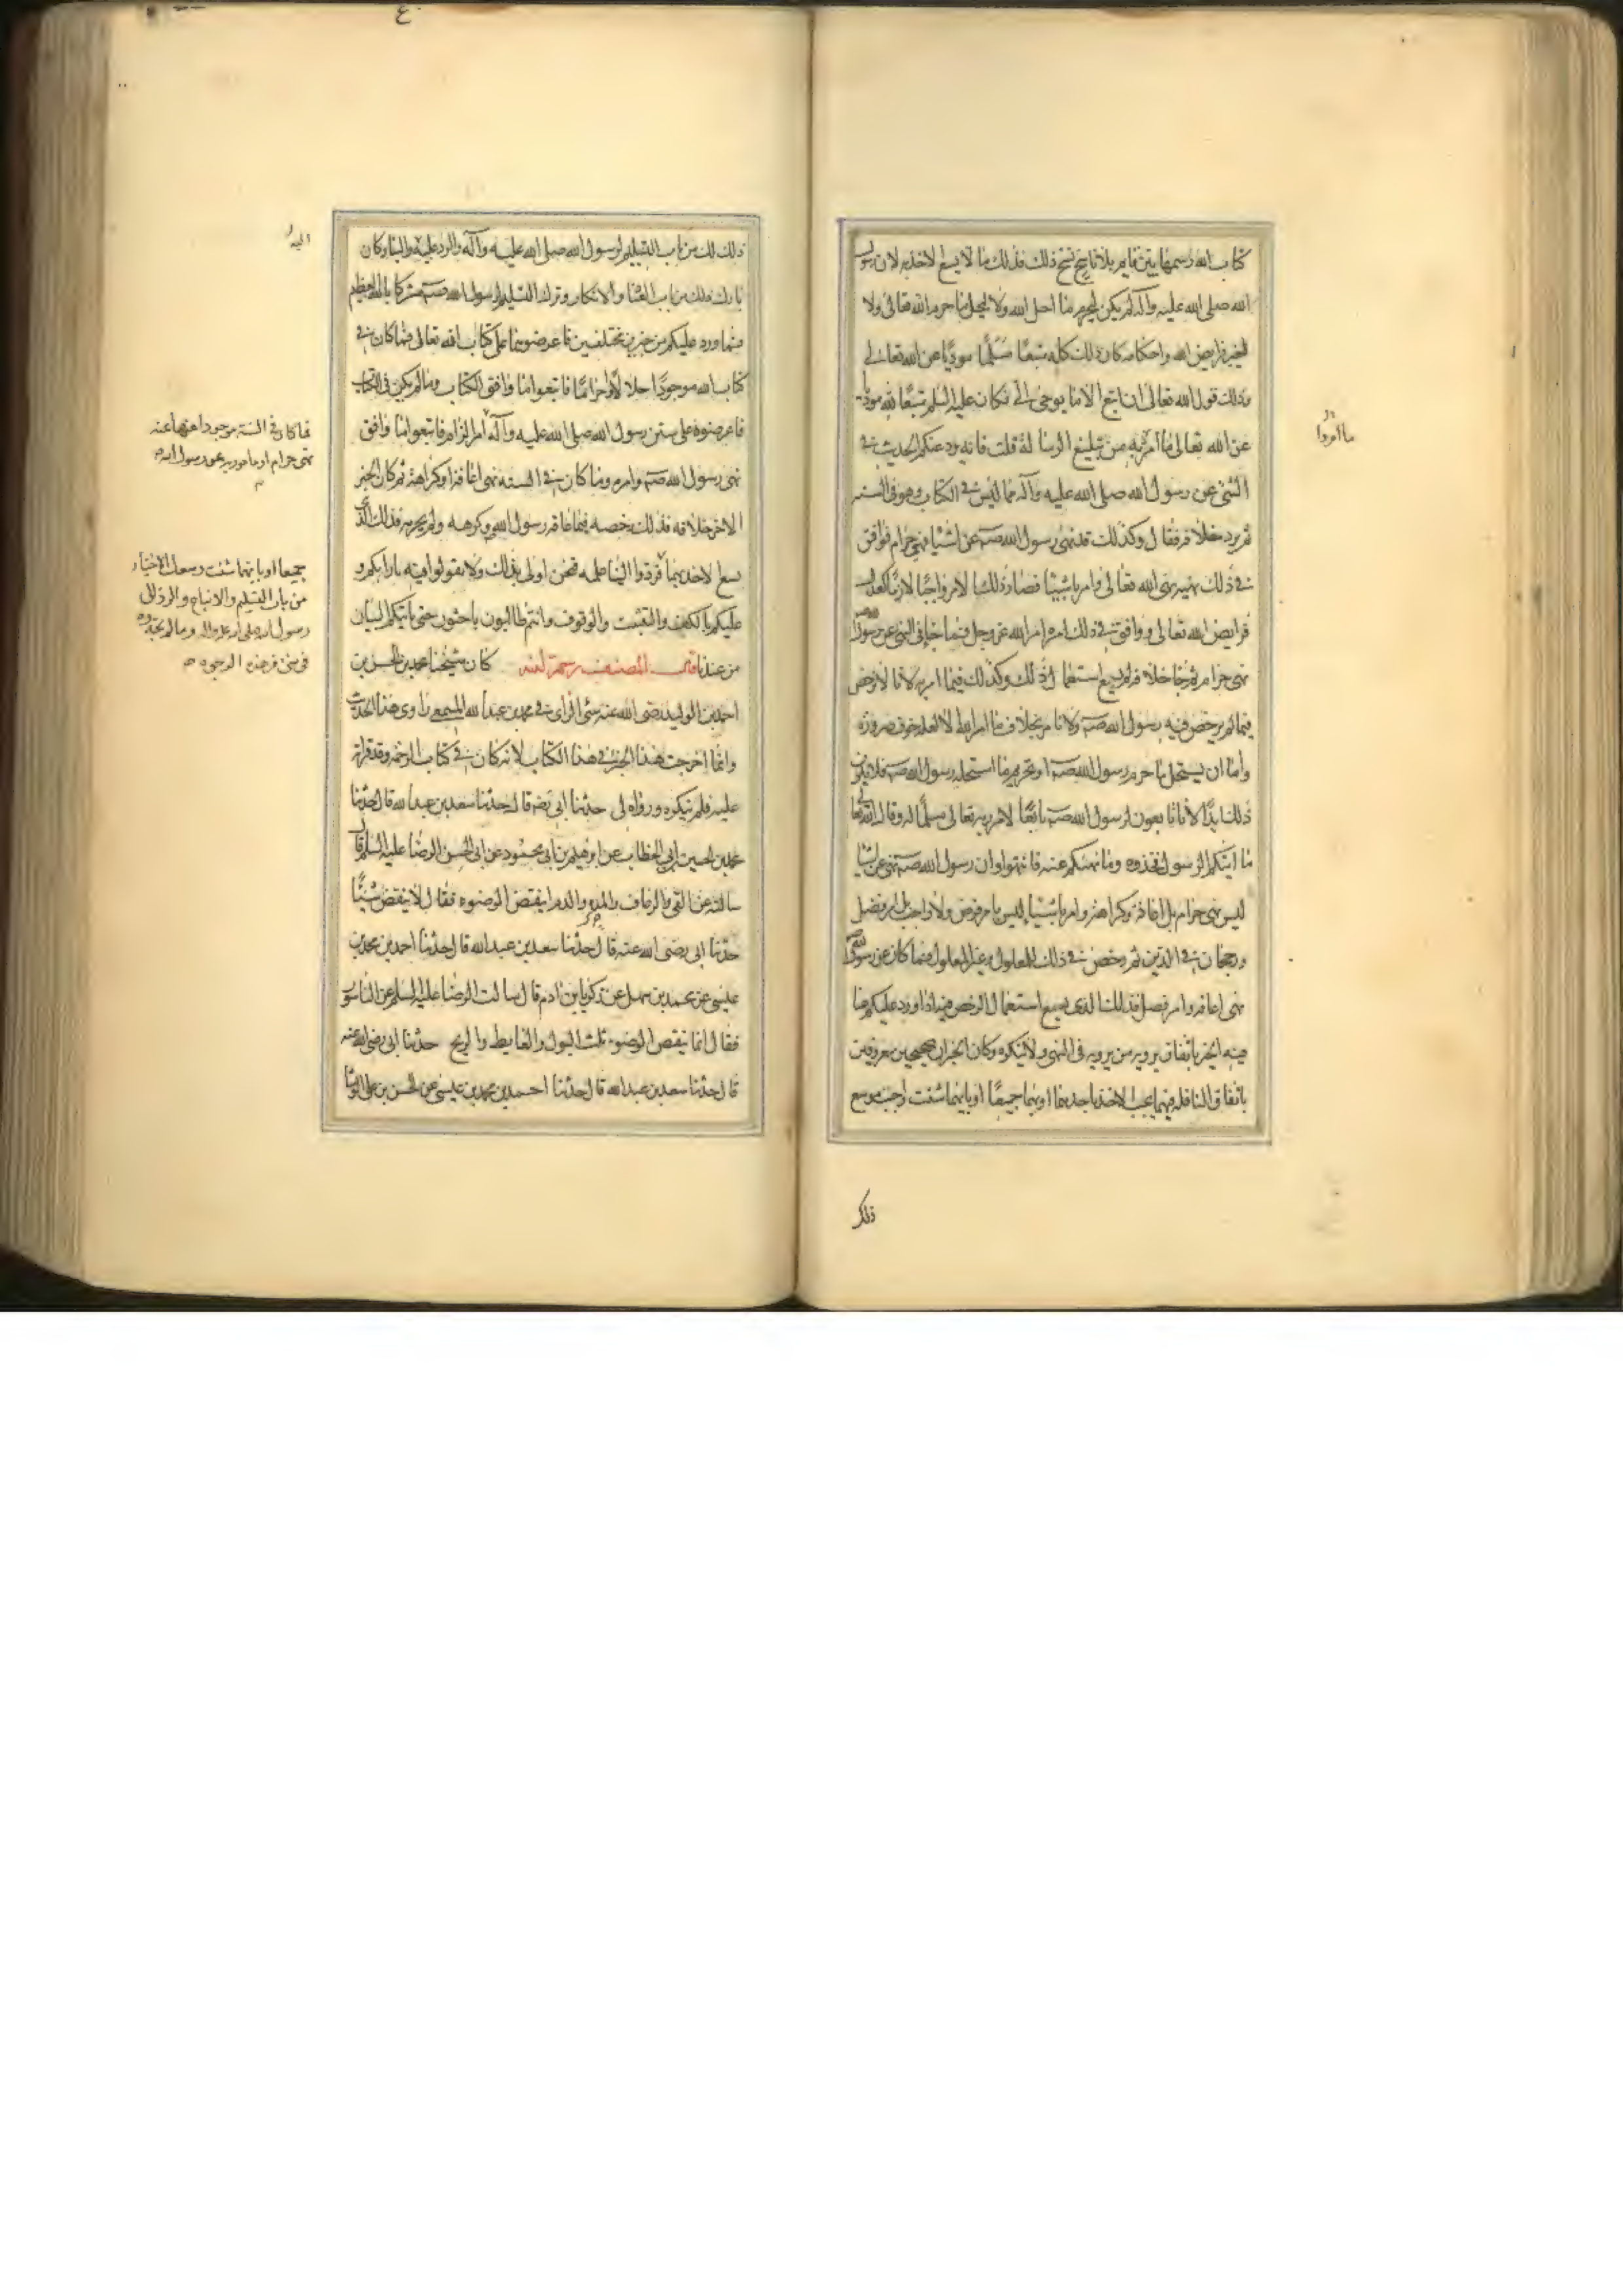 كتاب الله رسمها بين قايم بلا ناسخ نسخ ذلك فذلك ما لا يسع الاخذ به لان رسول
الله صلى الله عليه وآله لم يكن ليحرم ما احل الله ولا ليحل ما حرم الله تعالى ولا
ليغير فرايض الله واحكامه كان ذلك كله متبعًا مسلمًا مؤديًا عن الله تعالى
وذلك قول الله تعالى ان اتبع الا ما يوحى الي فكان عليه السلم متبعًا لله موديا
عن الله تعالى ما امر به من تبليغ الرسالة قلت فانه يرد عنكم الحديث في
الشئ عن رسول الله صلى الله عليه وآله مما ليس في الكتاب وهو في السنه
ثم يرد خلافه فقال وكذلك قد نهى رسول الله صـ عن اشيا نهي حرام فوافق
في ذلك نهيه نهى الله تعالى وامر باشيا فصار ذلك الامر واجبًا لازمًا كعدل
فرايض الله تعالى ووافق في ذلك امره امر الله عز وجل فما جا في النهي عن رسول الله صـ
نهي حرام ثم جا خلافه لم يسع استعمال ذلك وكذلك فيما امر به لانا لا نرخص
فيما لم يرخص فيه رسول الله صـ ولا نامر بخلاف ما امر الله الا لعلة خوف ضرورة
واما ان يستحل ما حرم رسول الله صـ او تحريم ما استحله رسول الله صـ فلا يكون
ذلك ابدًا لانا تابعون لرسول الله صـ تابعًا لامر ربه تعالى مسلمًا له وقال الله تعالى
ما اتيكم الرسول فخذوه وما نهيكم عنه فانتهوا وان رسول الله صـ نهى عن اشيا
ليس نهي حرام بل اعافة وكراهة وامر باشيا ليس بامر فرض ولا واجب بل امر فضل
ورجحان في الدين ثم رخص في ذلك للمعلول وغير المعلول فما كان عن رسول الله صـ
نهي اعافه وامر فضل فذلك الذي يسع استعمال الرخص فيه اذا ورد عليكم عنا
فيه الخبر باتفاق يرويه من يرويه في النهي ولا ينكره وكان الخبران صحيحين معروفين
باتفاق الناقله فيهما يجب الاخذ باحدهما او بهما جميعًا او بايهما شئت واجب موسع
ذلك
ذلك لك من باب التسليم لرسول الله صلى الله عليه وآله والرد عليه والينا وكان
تارك ذلك من باب العناد والانكار وترك التسليم لرسول الله صـ مشركا بالله العظيم
فما ورد عليكم من خبرين مختلفين فاعرضوهما على كتاب الله تعالى فما كان في
كتاب الله موجودًا حلالا او حرامًا فاتبعوا ما وافق الكتاب وما لم يكن في الكتاب
فاعرضوه على سنن رسول الله صلى الله عليه وآله امر الزام فاتبعوا ما وافق
نهي رسول الله صـ وامره وما كان في السنه نهي اعافة او كراهة ثم كان الخبر
الاخر خلافه فذلك رخصه فيما عافه رسول الله وكرهه ولم يحرمه فذلك الذي
يسع الاخذ بهما فردوا الينا علمه فنحن اولى بذلك ولا تقولوا فيه بارايكم و
عليكم بالكف والتثبت والوقوف وانتم طالبون باحثون حتى ياتيكم البيان
من عندنا قال المصنف رحمة الله كان شيخنا محمد بن الحسن بن
احمد بن الوليد رضى الله عنه سئ الراى في محمد بن عبد الله المسمعي راوي هذا الحديث
وانما اخرجت هذا الخبر في هذا الكتاب لانه كان في كتاب الرحمة وقد قراته
عليه فلم ينكره ورواه لي حدثنا ابي رضه قال حدثنا سعد بن عبد الله قال حدثنا
محمد بن الحسين ابي الخطاب عن ابرهيم بن ابي محمود عن ابى الحسن الرضا عليه السلم قال
سالته عن القي والرعاف والمده والدم اينقض الوضوء فقال لا ينقض شيئًا
حدثنا ابى رضى الله عنه قال حدثنا سعد بن عبد الله قال حدثنا احمد بن محمد بن
عيسى عن محمد بن سهل عن زكريا بن ادم قال سالت الرضا عليه السلم عن الناسور
فقال انما ينقض الوضوء ثلث البول والغايط والريح حدثنا ابى رضى الله عنه
قال حدثنا سعد بن عبد الله قال حدثنا احمد بن محمد بن عيسى عن الحسن بن على الوشا
فما كان في السنة موجودا منهيا عنه
نهى حرام او مامورا به عن رسول الله
جميعا او بايهما شئت وسعك الاختيار
من باب التسليم والاتباع والرد الى
رسول الله صلى الله عليه واله وما لم تجدوه
في شئ من هذه الوجوه